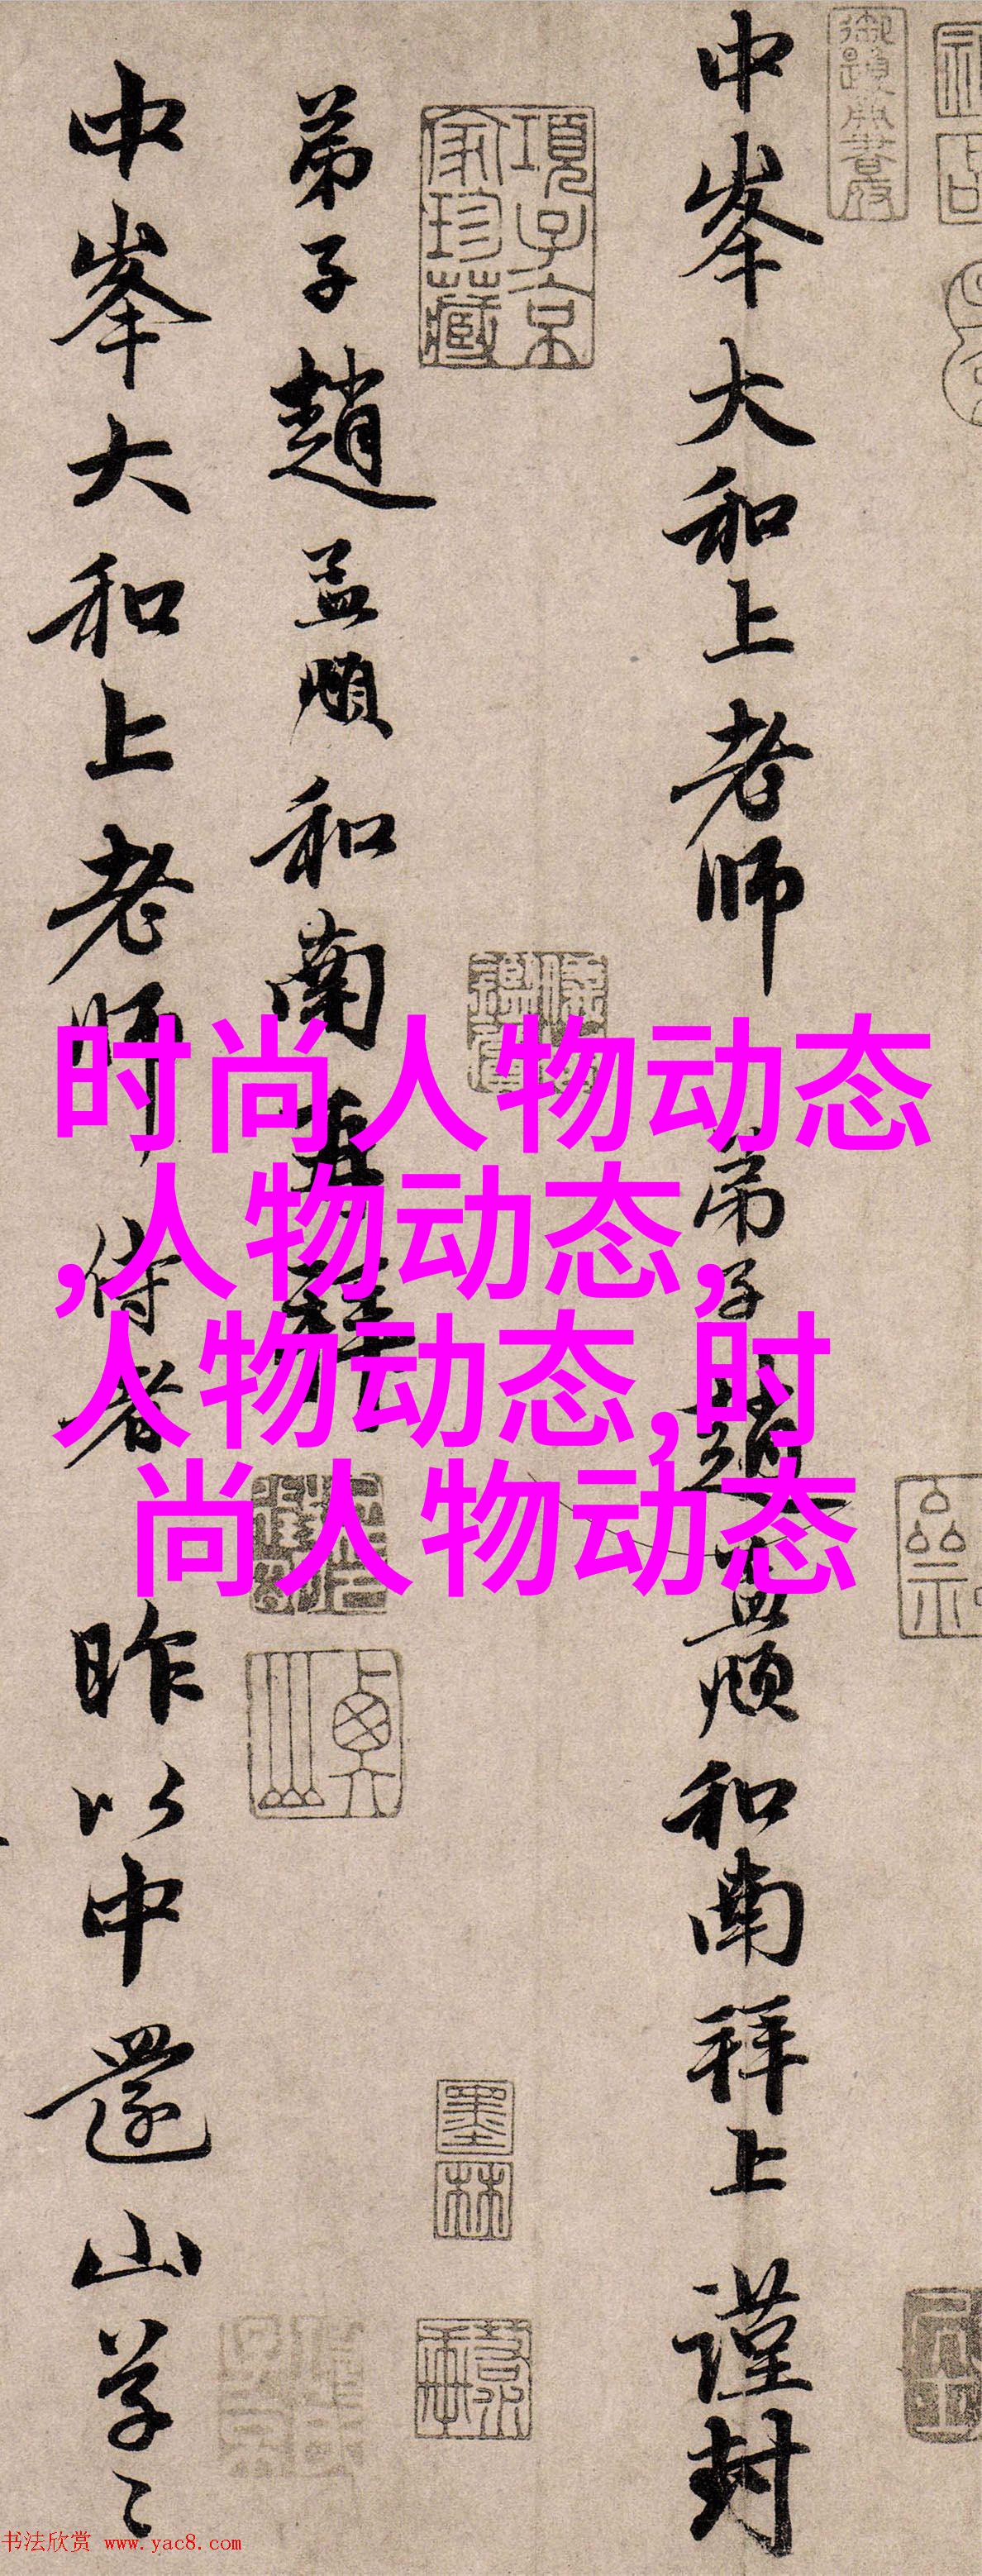 中峯大和上老師 弟子趙孟頫和南拜上 謹封
項子京家珍藏
弟子趙孟頫和南再拜
中峯大和上老師侍者 昨以中還山草々
墨林
时尚人物动态
,人物动态,
人物动态,时
尚人物动态
书法欣赏 www.yac8.com